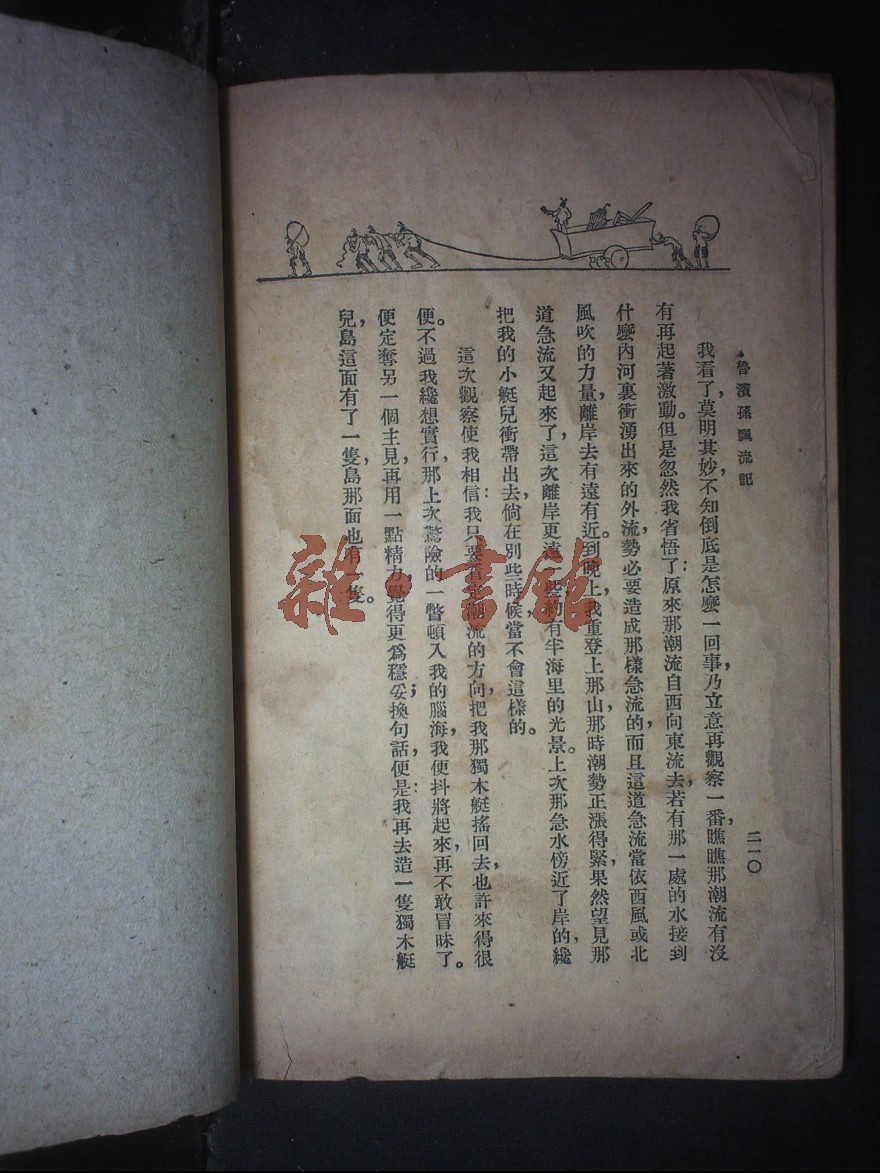 魯濱孫飄流記
二一〇
我看了，莫明其妙，不知倒底是怎麼一回事，乃立意再觀察一番，瞧瞧那潮流有沒
有再起著激動。但是忽然我省悟了：原來那潮流自西向東流去，若有那一處的水接到
什麼內河裏衝湧出來的外流，勢必要造成那樣急流的，而且這道急流當依西風或北
風吹的力量，離岸去有遠有近。到晚上，我重登上那山，那時潮勢正漲得緊，果然望見那
道急流又起來了，這次離岸更遠一些，約有半海里的光景。上次那急水傍近了岸的，纔
把我的小艇兒衝帶出去，倘在別些時候，當不會這樣的。
這次觀察使我相信：我只要看定潮流的方向，把我那獨木艇搖回去，也許來得很
便。不過我纔想實行，那上次驚險的一瞥頓入我的腦海，我便抖將起來，再不敢冒昧了。
便定奪另一個主見，再用一點精力，覺得更爲穩妥；換句話，便是：我再去造一隻獨木艇
兒，島這面有了一隻，島那面也有一隻。
雜·書館